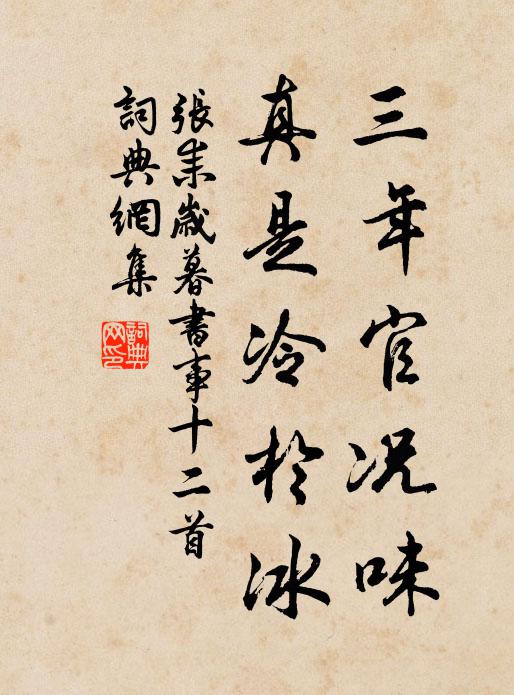 三年官况味
真是冷於冰
張耒歲暮書事十二首
詞典網集
詞典網印